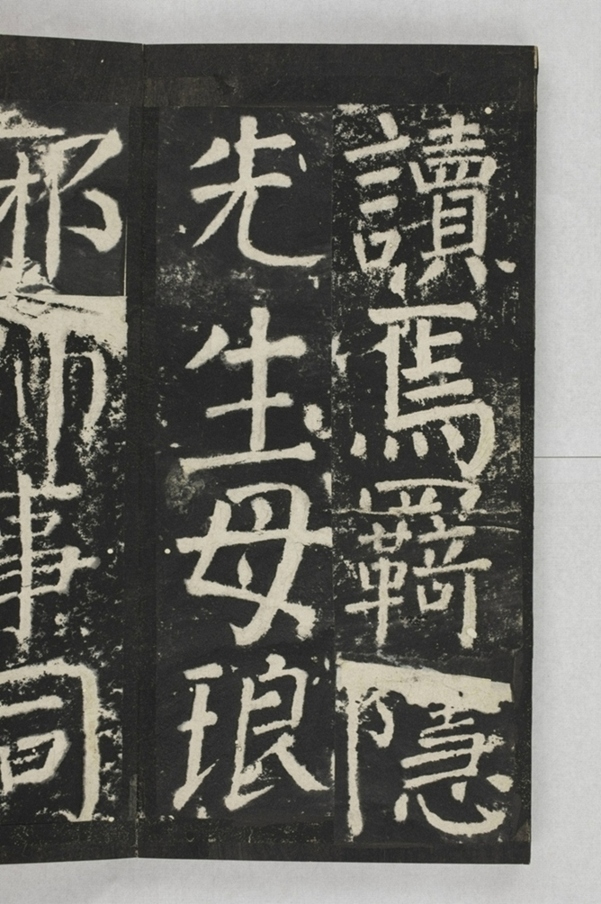 讀焉羇隱
先生母琅
邪師事同